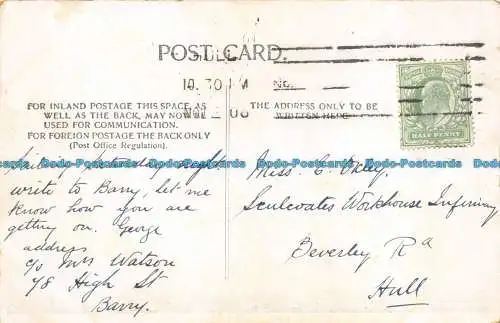 POST CARD.
10.30 PM
FOR INLAND POSTAGE THIS SPACE, AS
WELL AS THE BACK, MAY NOW BE
USED FOR COMMUNICATION.
FOR FOREIGN POSTAGE THE BACK ONLY
(Post Office Regulation).
write to Barry, let me
know how you are
getting on. George
address
c/o Mrs Watson
78 High St
Barry.
THE ADDRESS ONLY TO BE
WRITTEN HERE
HALF PENNY
Miss C.
Sculcoates Workhouse Infirmary
Beverley Rd
Hull
Dodo-Postcards Dodo-Postcards Dodo-Postcards Dodo-Postcards Dodo-Postcards